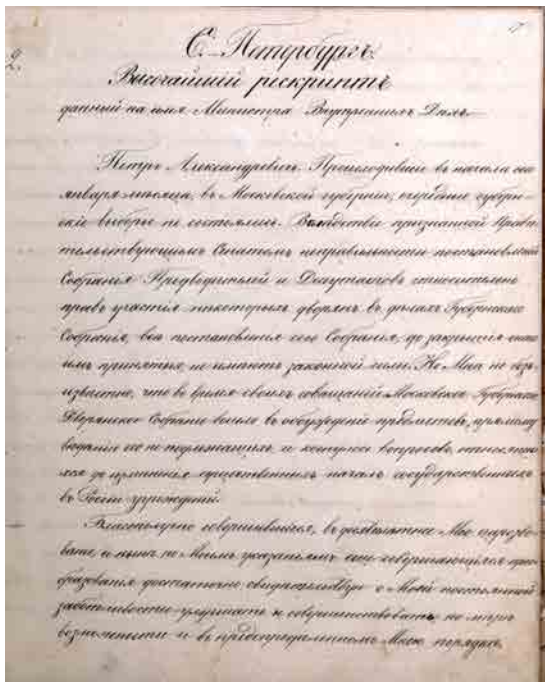 2.
С.-Петербургъ.
Высочайшій рескриптъ
данный на имя Министра Внутреннихъ Дѣлъ.
Петръ Александровичъ. Происходившіе въ началѣ сего
января мѣсяца, въ Московской губерніи, очередные губерн-
скіе выборы не состоялись. Вслѣдствіе признанной Прави-
тельствующимъ Сенатомъ неправильности постановленій
Собранія Предводителей и Депутатовъ относительно
правъ участія нѣкоторыхъ дворянъ въ дѣлахъ Губернскаго
Собранія, всѣ постановленія сего Собранія, до закрытія
имъ принятыя, не имѣютъ законной силы. Но Мнѣ не безъ-
извѣстно, что во время своихъ совѣщаній Московское Губернское
Дворянское Собраніе вошло въ обсужденіе предметовъ, прямому
вѣдѣнію его не подлежащихъ, и коснулось вопросовъ, относящи-
хся до измѣненія существенныхъ началъ государственныхъ
въ Россіи учрежденій.
Благополучно совершившіяся, въ десятилѣтнее Мое царствo-
ваніе, и нынѣ по Моимъ указаніямъ еще совершающіяся пре-
образованія достаточно свидѣтельствуютъ о Моей постоянной
заботливости улучшать и совершенствовать по мѣрѣ
возможности и въ предопредѣленномъ Мною порядкѣ,